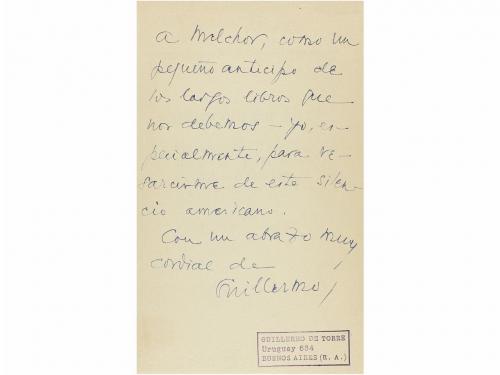 A Melchor, como un
pequeño anticipo de
los largos libros que
nos debemos – yo, es-
pecialmente, para re-
sarcirme de este silen-
cio americano.
Con un abrazo muy
cordial de
Guillermo
GUILLERMO DE TORRE
Uruguay 684
BUENOS AIRES (R. A.)